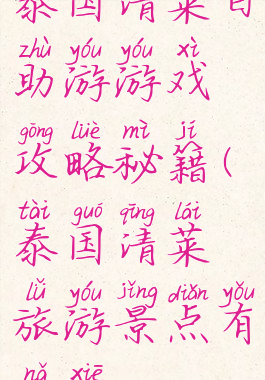 泰国清莱自
zhù yóu yóu xì
助游游戏
gōng lüè mì jí
攻略秘籍(
tài guó qīng lái
泰国清莱
lǚ yóu jǐng diǎn yǒu
旅游景点有
nǎ xiē